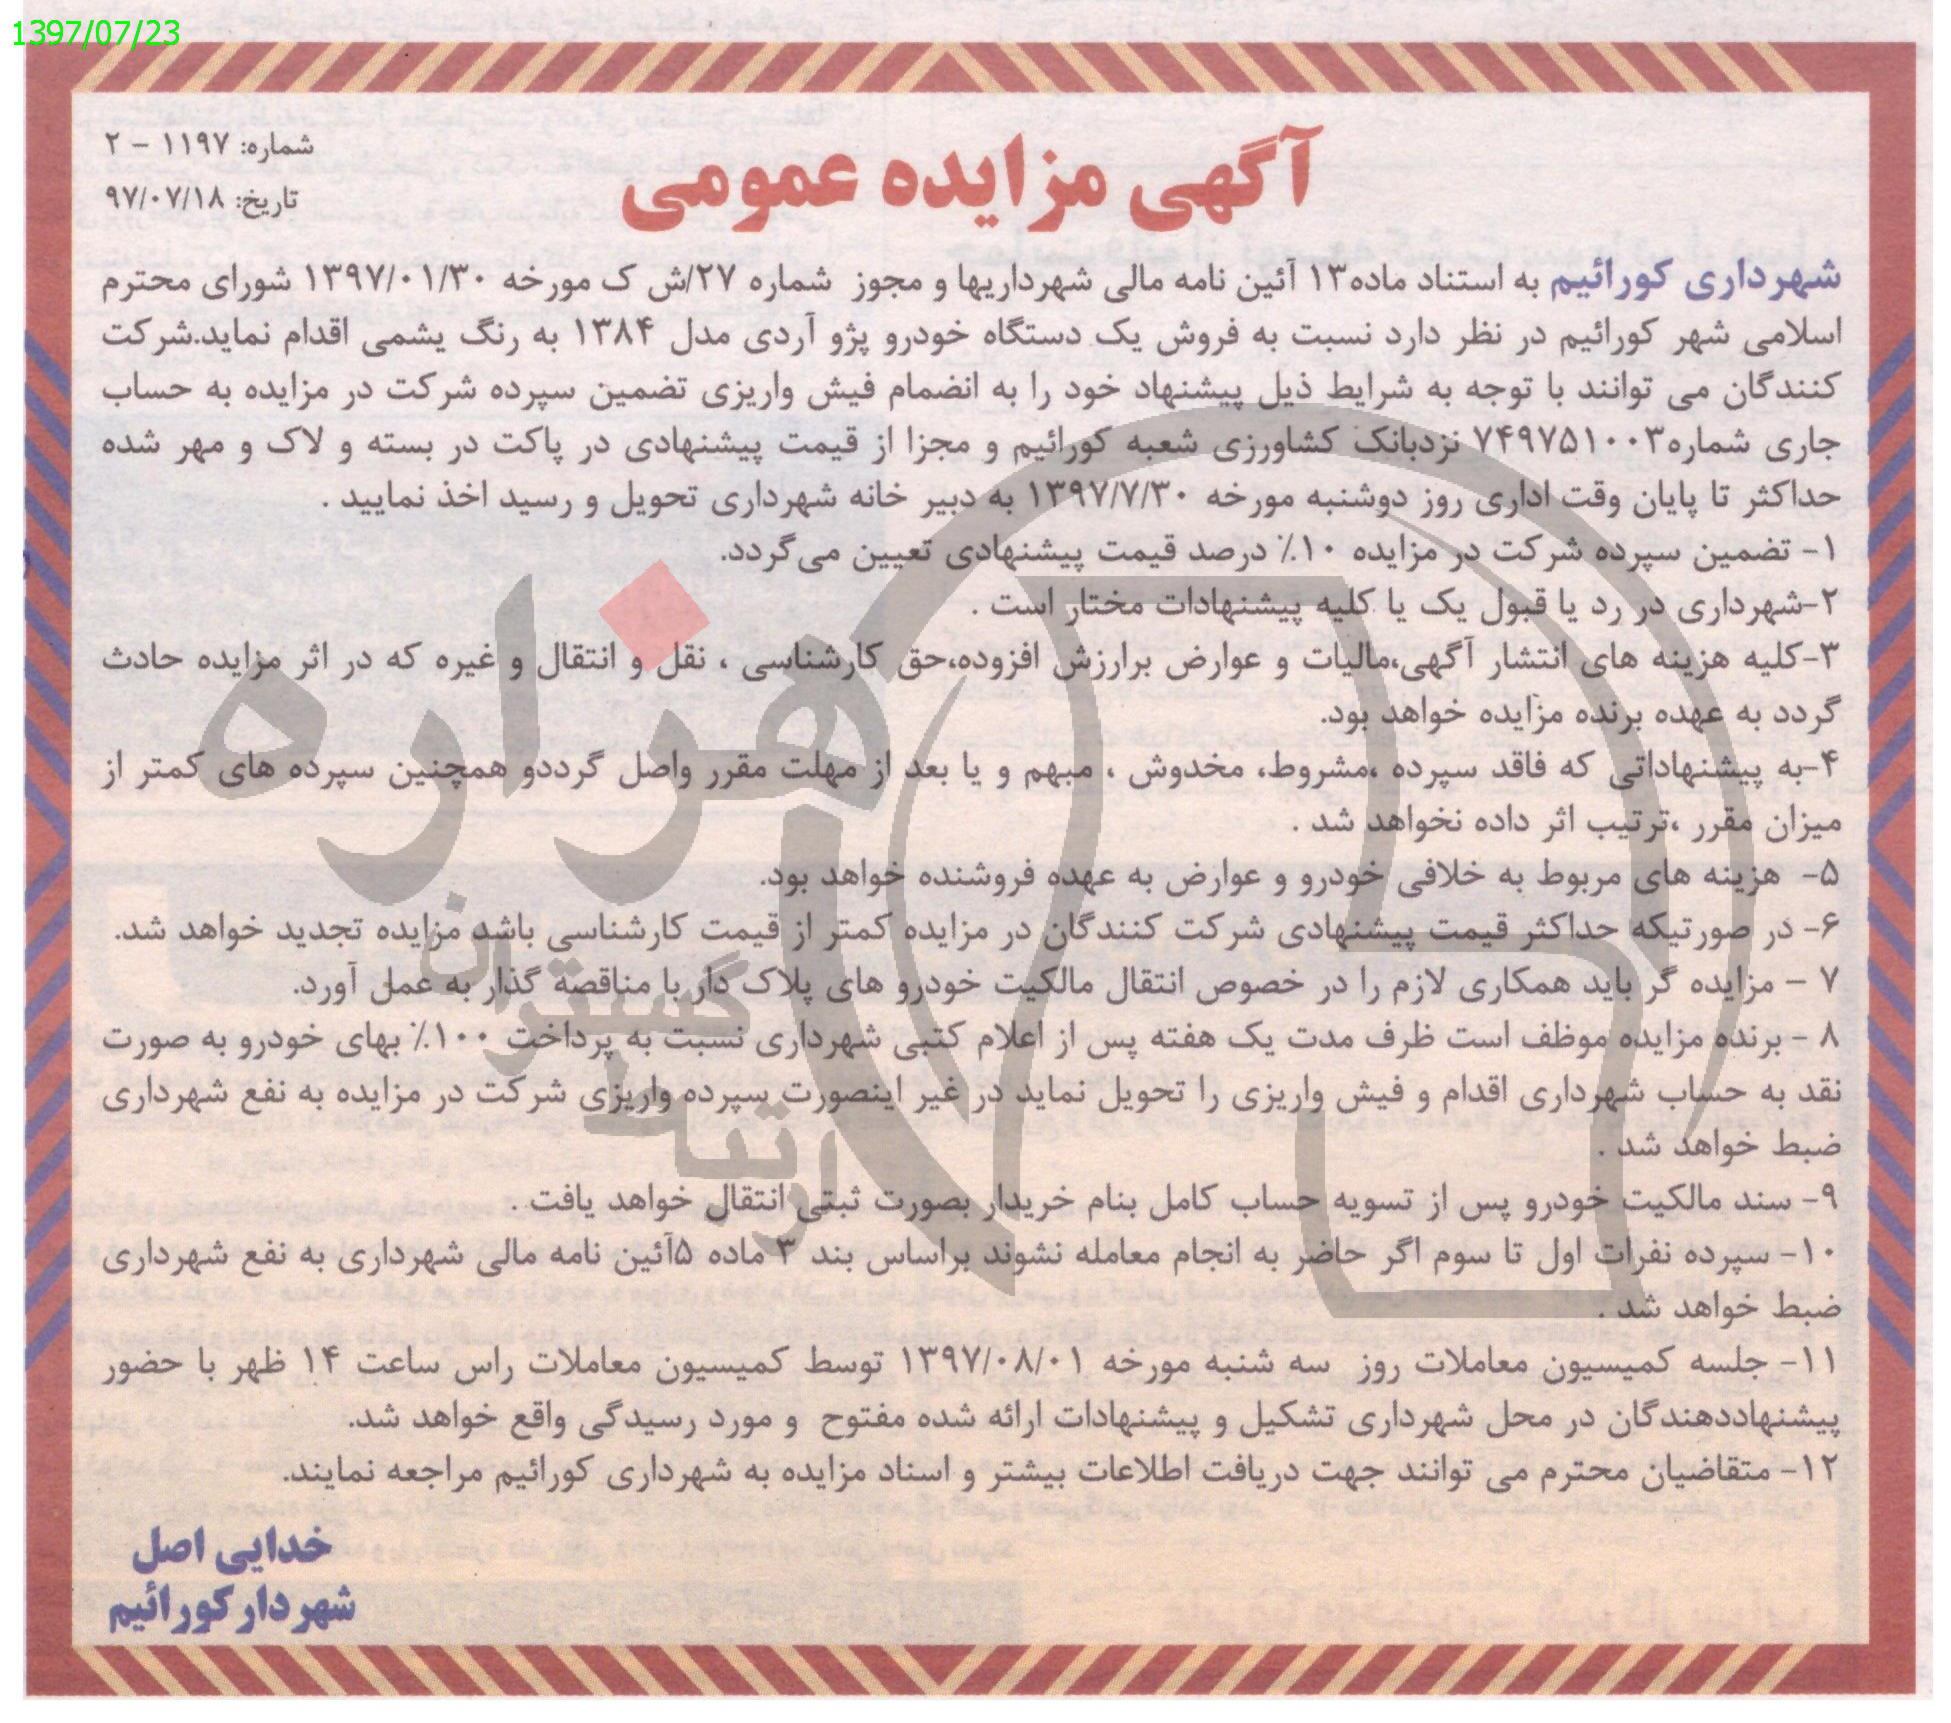 1397/07/23
شماره: ۱۱۹۷ - ۲
تاریخ: ۹۷/۰۷/۱۸
آگهی مزایده عمومی
شهرداری کورائیم به استناد ماده۱۳ آئین نامه مالی شهرداریها و مجوز شماره ۲۷/ش ک مورخه ۱۳۹۷/۰۱/۳۰ شورای محترم
اسلامی شهر کورائیم در نظر دارد نسبت به فروش یک دستگاه خودرو پژو آردی مدل ۱۳۸۴ به رنگ یشمی اقدام نماید.شرکت
کنندگان می توانند با توجه به شرایط ذیل پیشنهاد خود را به انضمام فیش واریزی تضمین سپرده شرکت در مزایده به حساب
جاری شماره۷۴۹۷۵۱۰۰۳ نزدبانک کشاورزی شعبه کورائیم و مجزا از قیمت پیشنهادی در پاکت در بسته و لاک و مهر شده
حداکثر تا پایان وقت اداری روز دوشنبه مورخه ۱۳۹۷/۷/۳۰ به دبیر خانه شهرداری تحویل و رسید اخذ نمایید .
۱- تضمین سپرده شرکت در مزایده ۱۰٪ درصد قیمت پیشنهادی تعیین می‌گردد.
۲-شهرداری در رد یا قبول یک یا کلیه پیشنهادات مختار است .
۳-کلیه هزینه های انتشار آگهی،مالیات و عوارض برارزش افزوده،حق کارشناسی ، نقل و انتقال و غیره که در اثر مزایده حادث
گردد به عهده برنده مزایده خواهد بود.
۴-به پیشنهاداتی که فاقد سپرده ،مشروط، مخدوش ، مبهم و یا بعد از مهلت مقرر واصل گرددو همچنین سپرده های کمتر از
میزان مقرر ،ترتیب اثر داده نخواهد شد .
۵- هزینه های مربوط به خلافی خودرو و عوارض به عهده فروشنده خواهد بود.
۶- در صورتیکه حداکثر قیمت پیشنهادی شرکت کنندگان در مزایده کمتر از قیمت کارشناسی باشد مزایده تجدید خواهد شد.
۷ - مزایده گر باید همکاری لازم را در خصوص انتقال مالکیت خودرو های پلاک دار با مناقصه گذار به عمل آورد.
۸ - برنده مزایده موظف است ظرف مدت یک هفته پس از اعلام کتبی شهرداری نسبت به پرداخت ۱۰۰٪ بهای خودرو به صورت
نقد به حساب شهرداری اقدام و فیش واریزی را تحویل نماید در غیر اینصورت سپرده واریزی شرکت در مزایده به نفع شهرداری
ضبط خواهد شد .
۹- سند مالکیت خودرو پس از تسویه حساب کامل بنام خریدار بصورت ثبتی انتقال خواهد یافت .
۱۰- سپرده نفرات اول تا سوم اگر حاضر به انجام معامله نشوند براساس بند ۳ ماده ۵آئین نامه مالی شهرداری به نفع شهرداری
ضبط خواهد شد .
۱۱- جلسه کمیسیون معاملات روز سه شنبه مورخه ۱۳۹۷/۰۸/۰۱ توسط کمیسیون معاملات راس ساعت ۱۴ ظهر با حضور
پیشنهاددهندگان در محل شهرداری تشکیل و پیشنهادات ارائه شده مفتوح و مورد رسیدگی واقع خواهد شد.
۱۲- متقاضیان محترم می توانند جهت دریافت اطلاعات بیشتر و اسناد مزایده به شهرداری کورائیم مراجعه نمایند.
خدایی اصل
شهردار کورائیم
هزاره
گستران
ارتباط